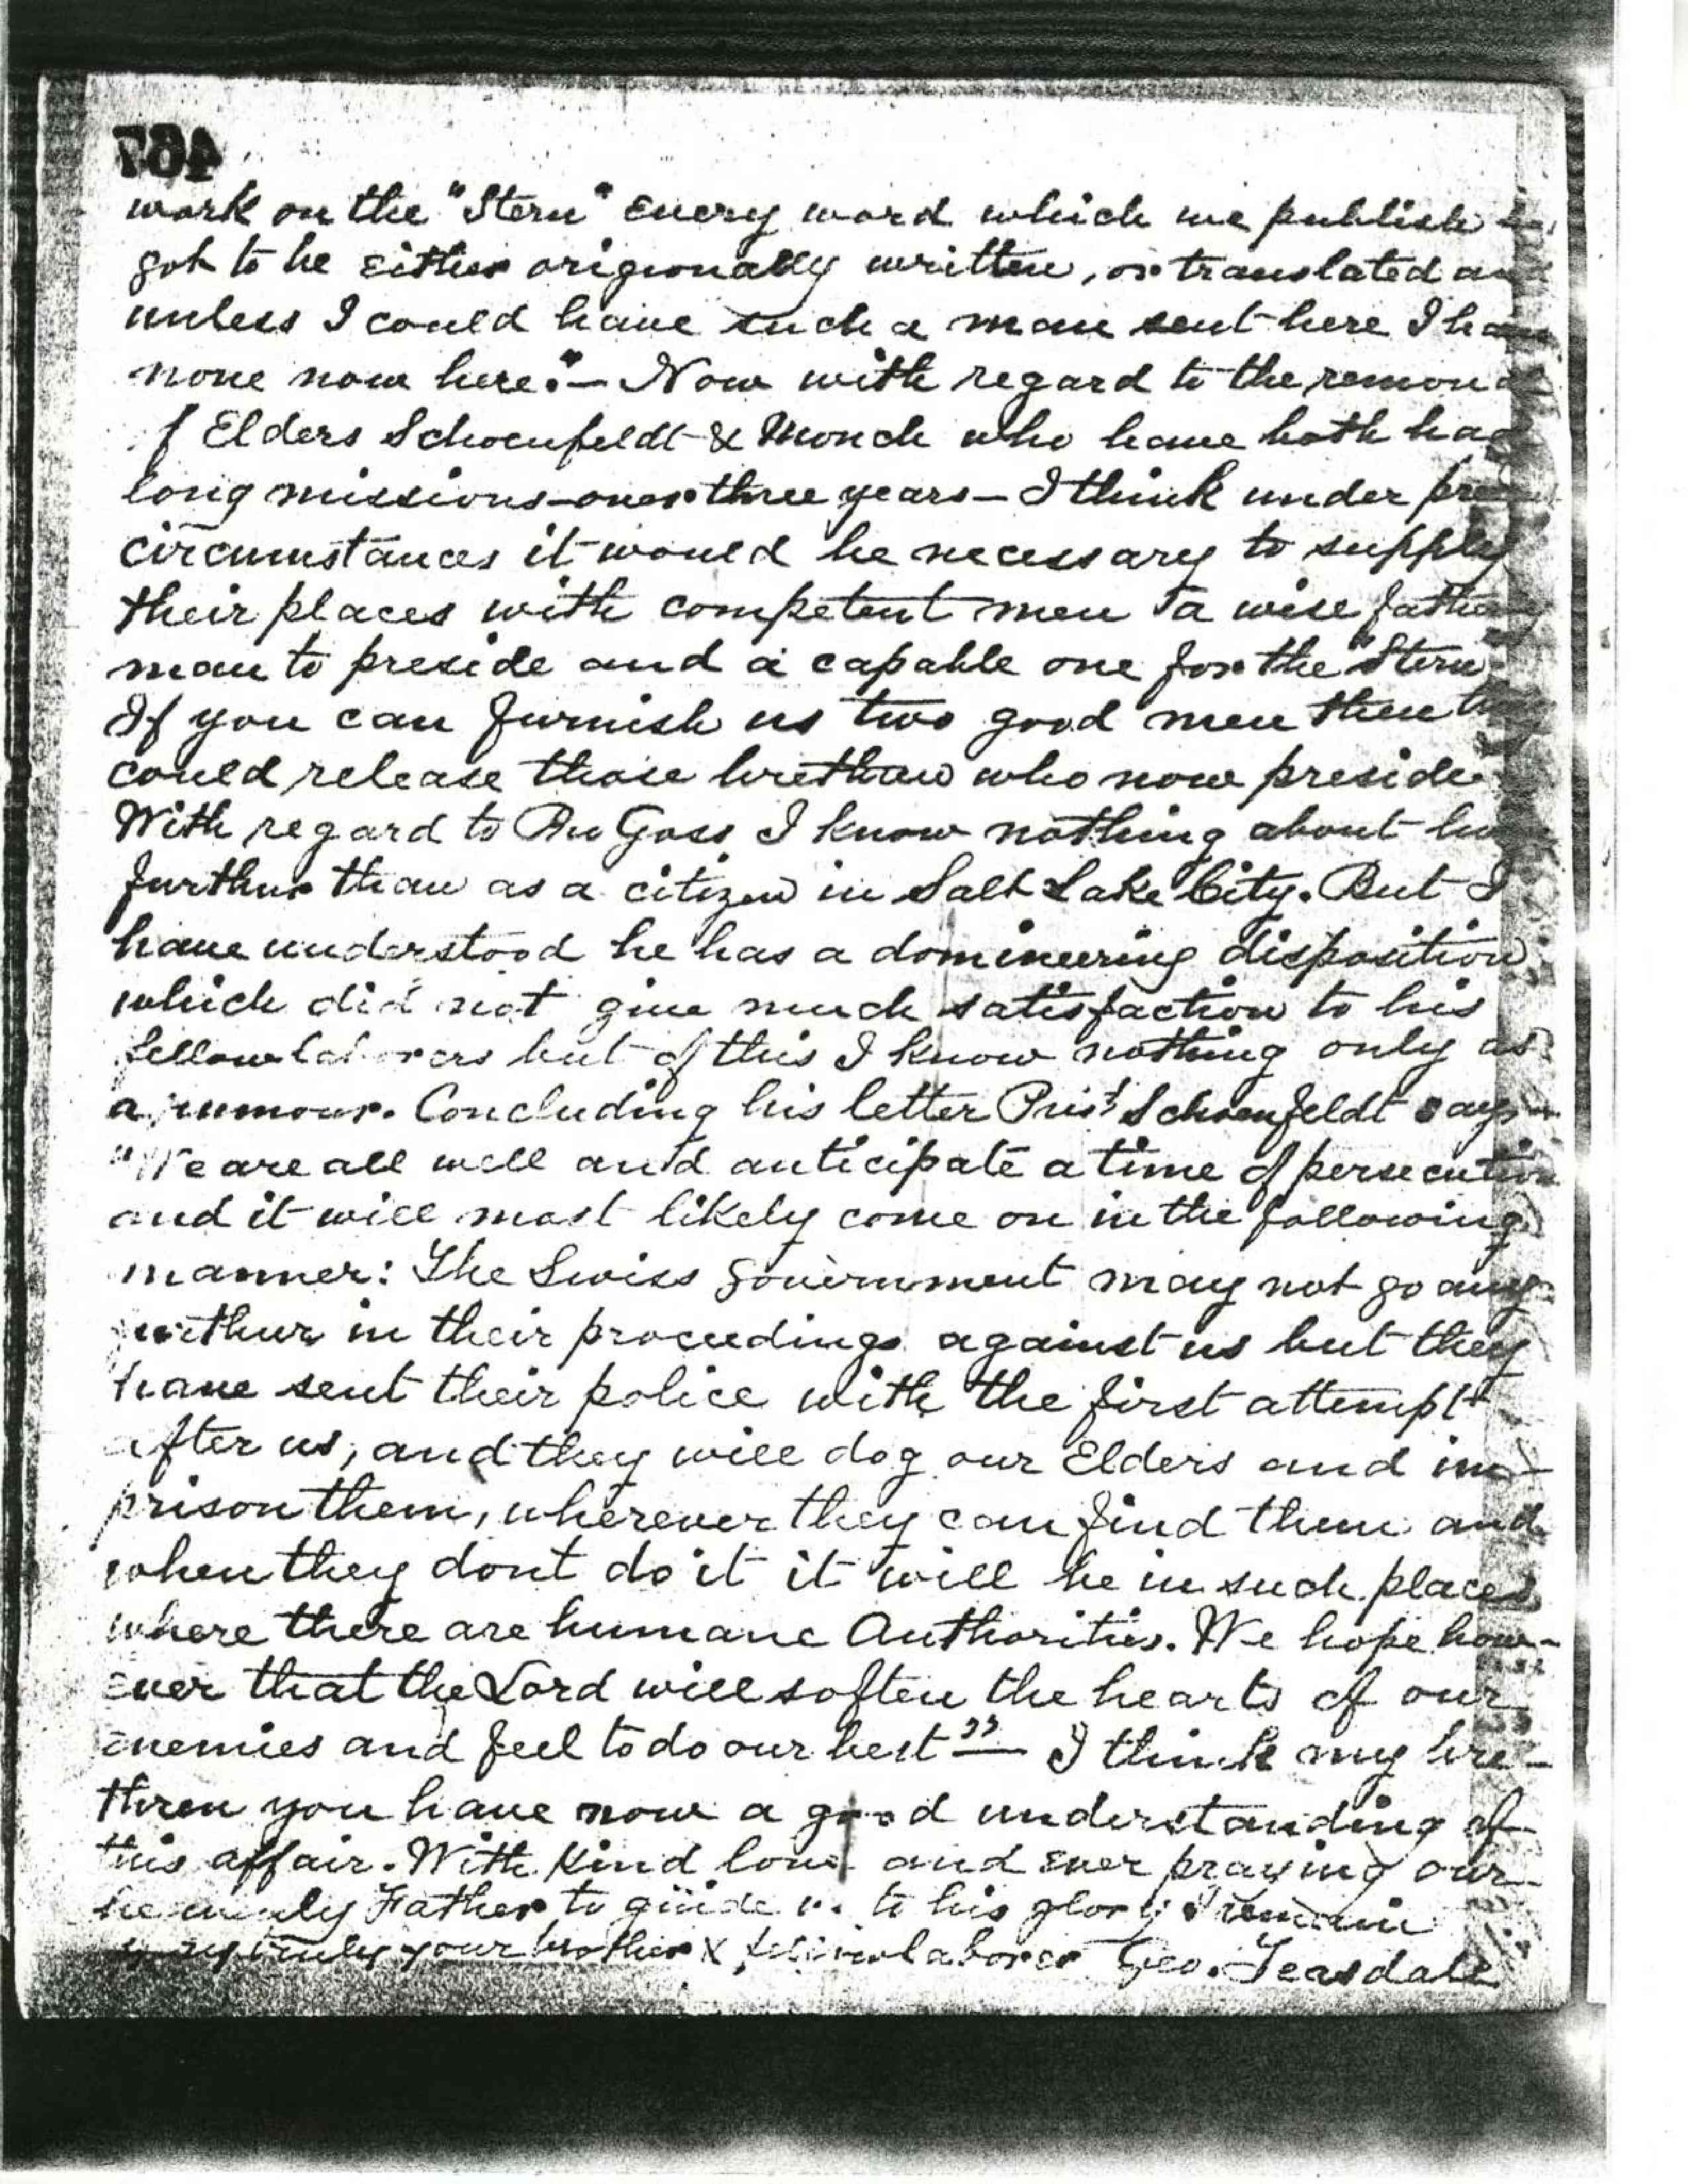 467
work on the "Stern" every word which we publish has
got to be either origionally written, or translated and
unless I could have such a man sent here I have
none now here." — Now with regard to the removal
of Elders Schoenfeldt & Monch who have both had
long missions — over three years — I think under
circumstances it would be necessary to supply
their places with competent men a wise fatherly
man to preside and a capable one for the "Stern"
If you can furnish us two good men then they
could release those brethren who now preside.
With regard to Bro Gass I know nothing about him
further than as a citizen in Salt Lake City. But I
have understood he has a domineering disposition
which did not give much satisfaction to his
fellow laborers but of this I know nothing only as
a rumour. Concluding his letter Prist Schoenfeldt says —
"We are all well and anticipate a time of persecution
and it will most likely come on in the following
manner: The Swiss government may not go any
further in their proceedings against us but they
have sent their police with the first attempt
after us, and they will dog our Elders and im-
prison them, wherever they can find them and
when they dont do it it will be in such places
where there are humane Authorities. We hope how-
ever that the Lord will soften the hearts of our
enemies and feel to do our best" — I think my bre-
thren you have now a good understanding of
this affair. With kind love and ever praying our
heavenly Father to guide us to his glory I remain
very truly your brother & fellowlaborer Geo. Teasdale